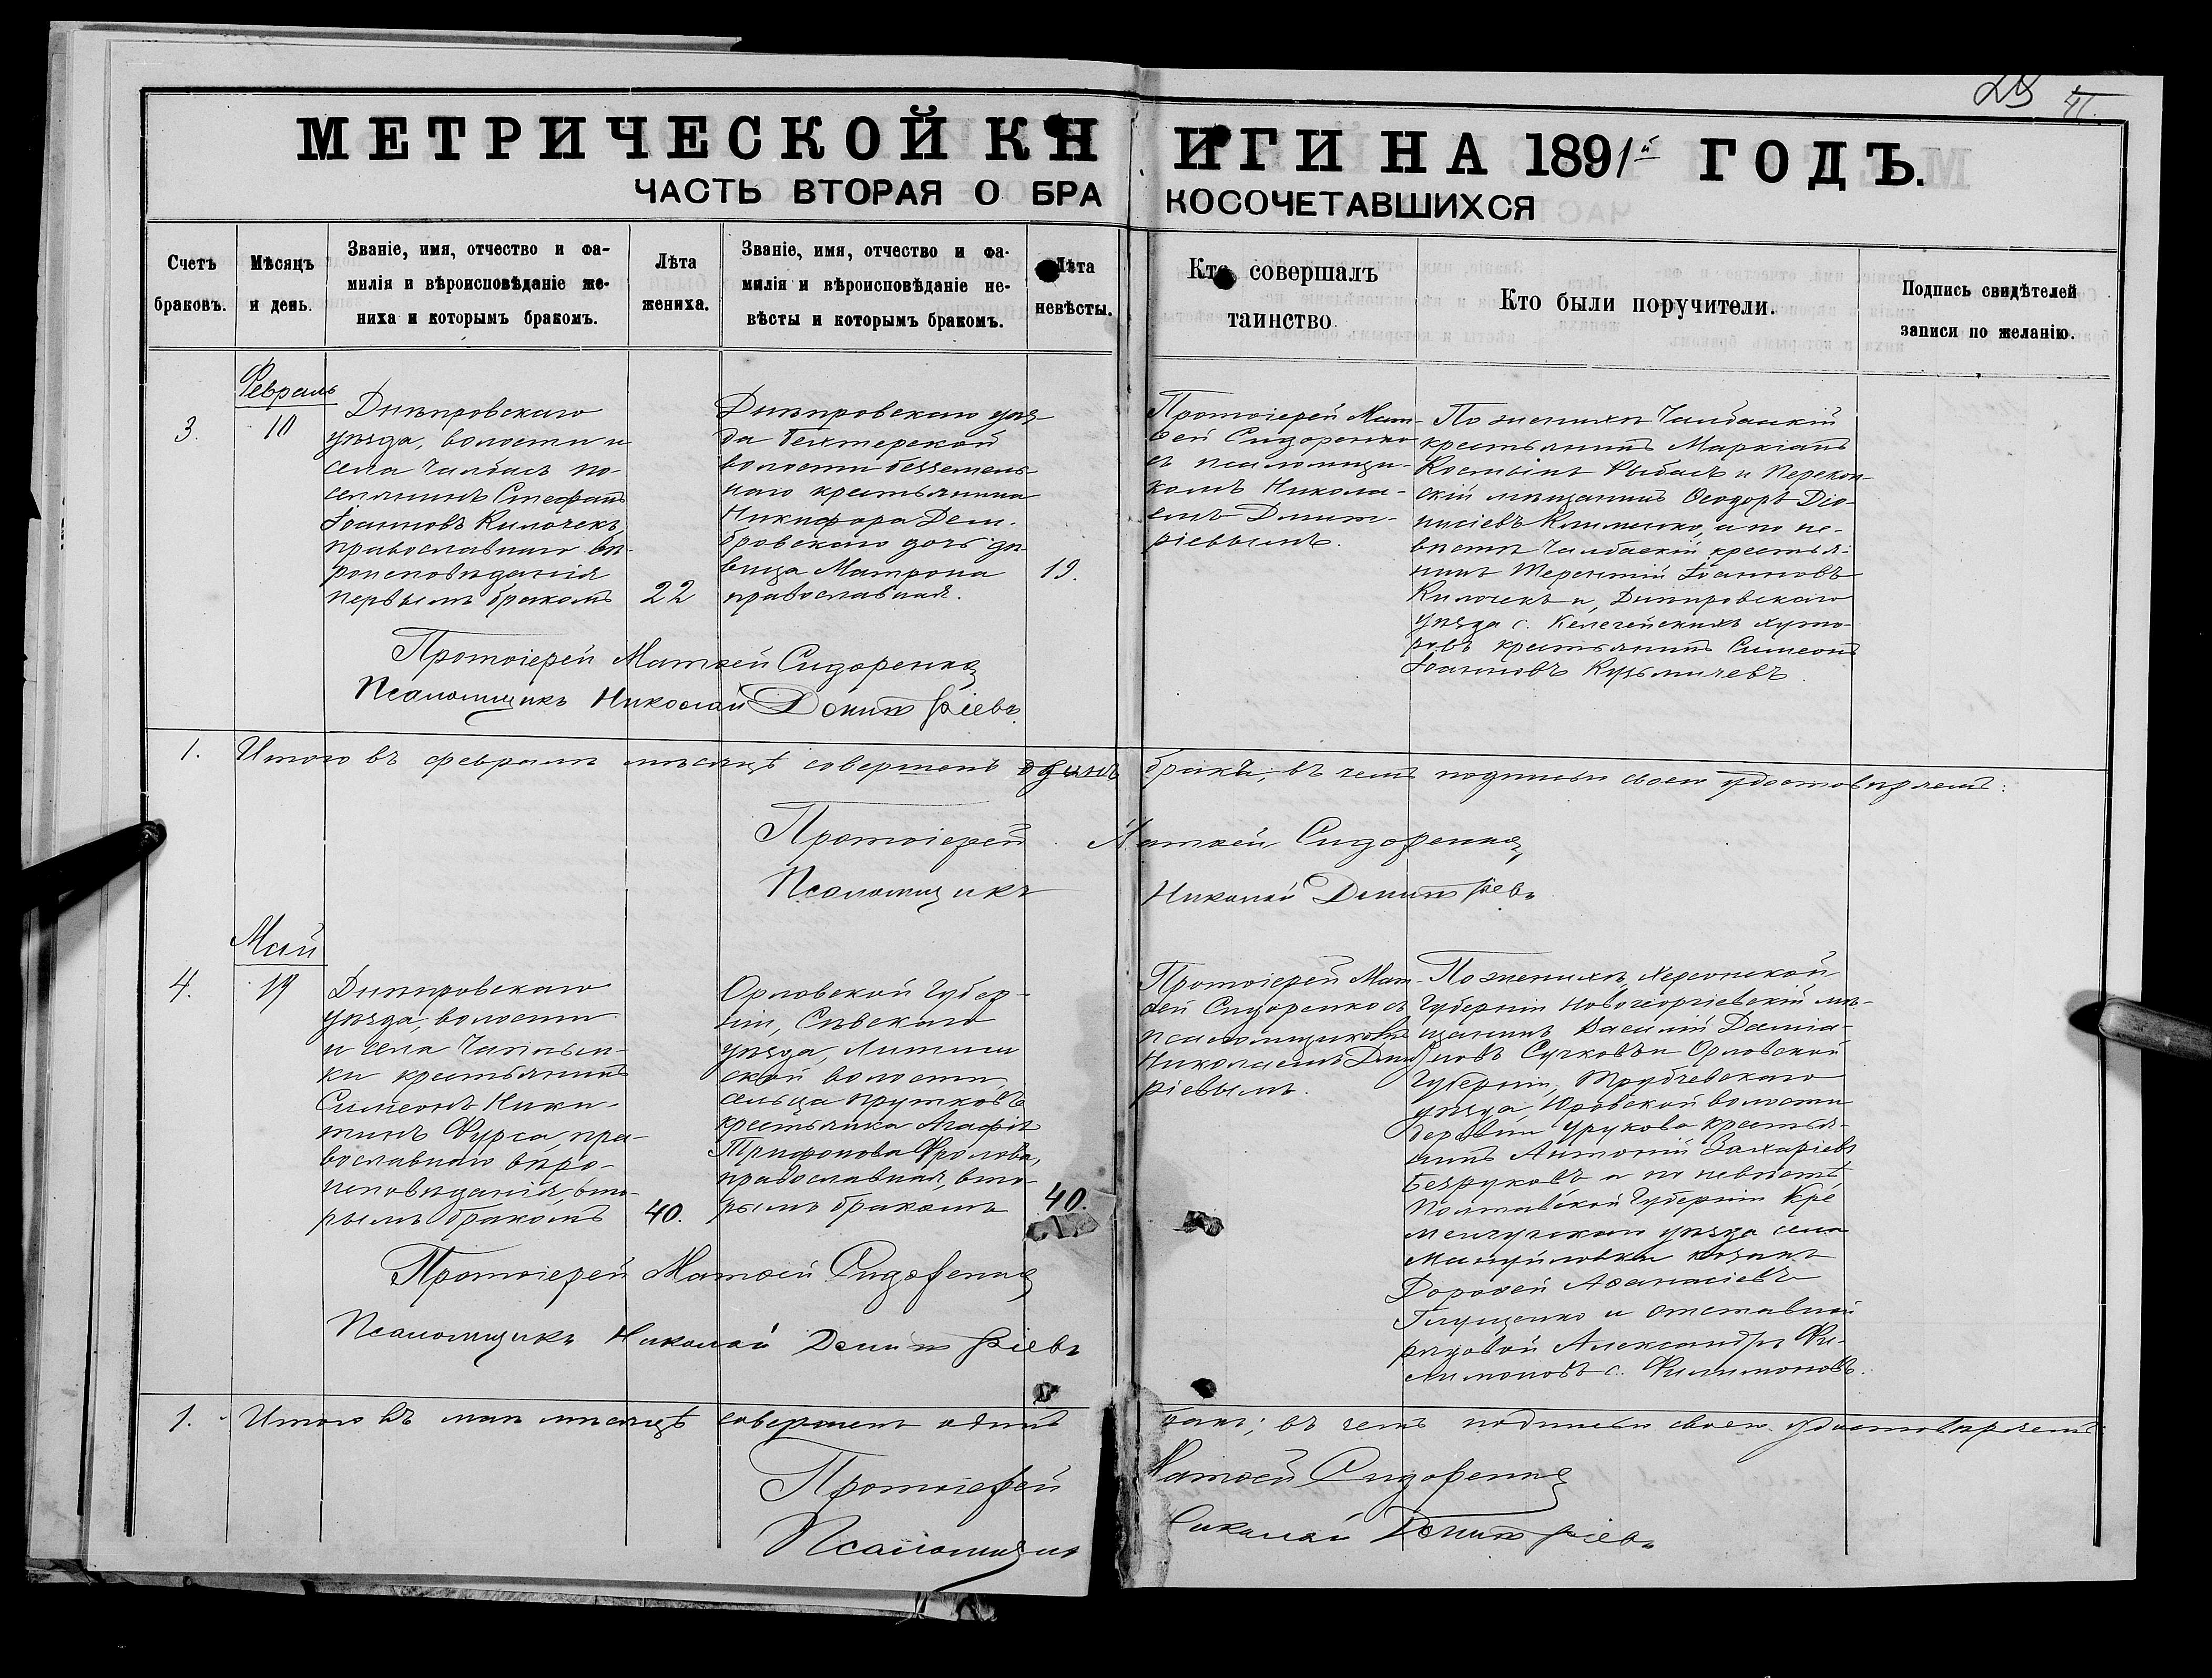 25
МЕТРИЧЕСКОЙ КНИГИ НА 1891й ГОДЪ.
ЧАСТЬ ВТОРАЯ О БРАКОСОЧЕТАВШИХСЯ
Счетъ
браковъ.
Мѣсяцъ
и день.
Званіе, имя, отчество и фа-
милія и вѣроисповѣданіе же-
ниха и которымъ бракомъ.
Лѣта
жениха.
Званіе, имя, отчество и фа-
милія и вѣроисповѣданіе не-
вѣсты и которымъ бракомъ.
Лѣта
невѣсты.
Кто совершалъ
таинство.
Кто были поручители.
Подпись свидѣтелей
записи по желанію.
3.
Февраль
10
Днѣпровскаго
уѣзда, волости и
села Чалбасъ по-
селянинъ Стефанъ
Іоанновъ Килочекъ,
православнаго вѣ-
роисповѣданія
первымъ бракомъ
22
Днѣпровскаго уѣз-
да Бехтерской
волости безземель-
наго крестьянина
Никифора Дом-
бровскаго дочь дѣ-
вица Матрона
православная.
19.
Протоіерей Мат-
ѳей Сидоренко
съ псаломщи-
комъ Никола-
емъ Дмит-
ріевымъ.
По женихѣ Чалбаскій
крестьянинъ Маркіанъ
Рыбасъ и Перекоп-
скій мѣщанинъ Ѳеодоръ Діо-
нисіевъ Клименко, а по не-
вѣстѣ Чалбаскій крестья-
нинъ Терентій Іоанновъ
Килочекъ и, Днѣпровскаго
уѣзда с. Келегейскихъ хуто-
ровъ крестьянинъ Симеонъ
Іоанновъ Кузьмичевъ.
Протоіерей Матѳей Сидоренко
Псаломщикъ Николай Дмитріевъ.
1. Итого въ февралѣ мѣсяцѣ совершенъ одинъ бракъ, въ чемъ подписью своею удостовѣряемъ:
Протоіерей Матѳей Сидоренко
Псаломщикъ Николай Дмитріевъ
4.
Май
19
Днѣпровскаго
уѣзда, волости
и села Чаплын-
ки крестьянинъ
Симеонъ Ники-
тинъ Фурса, пра-
вославнаго вѣро-
исповѣданія, вто-
рымъ бракомъ
40.
Орловской Губер-
ніи, Сѣвскаго
уѣзда, Литиж-
ской волости,
сельца Прутковъ
крестьянка Агафія
Трифонова Фролова,
православная, вто-
рымъ бракомъ
40.
Протоіерей Мат-
ѳей Сидоренко съ
псаломщикомъ
Николаемъ Дмит-
ріевымъ.
По женихѣ, Херсонской
Губерніи Новогеоргіевскій мѣ-
щанинъ Василій Даміа-
новъ Сучковъ и Орловской
Губерніи, Трубчевскаго
уѣзда, Юровской волости
деревни Урукова крестья-
нинъ Антоній Захаріевъ
Безруковъ а по невѣстѣ
Полтавской Губерніи Кре
менчугскаго уѣзда села
Мануйловки козакъ
Дороѳей Аѳанасіевъ
Глущенко и отставной
рядовой Александръ Фи-
лимоновъ с. Филимоновъ.
Протоіерей Матѳей Сидоренко
Псаломщикъ Николай Дмитріевъ
1. Итого въ маѣ мѣсяцѣ совершенъ одинъ бракъ; въ чемъ подписью своею удостовѣряемъ:
Протоіерей Матѳей Сидоренко
Псаломщикъ Николай Дмитріевъ